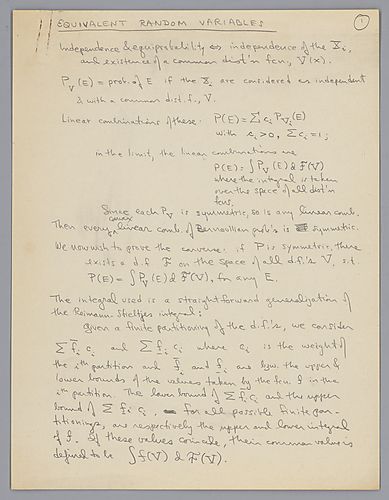 EQUIVALENT RANDOM VARIABLES
1
Independence & equiprobability as independence of the X_i,
and existence of a common dist'n fcn., V(x).
P_V(E) = prob. of E if the X_i are considered as independent
& with a common dist. f., V.
Linear combinations of these: P(E) = Σ c_i P_{V_i}(E)
with c_i > 0, Σ c_i = 1;
in the limit, the linear combinations are
P(E) = ∫ P_V(E) d F(V)
where the integral is taken
over the space of all dist'n
fcns.
Since each P_V is symmetric, so is any linear comb.
Then every convex linear comb. of Bernoullian prob's is symmetric.
We now wish to prove the converse: if P is symmetric, there
exists a d.f. F on the space of all d.f.'s V, s.t.
P(E) = ∫ P_V(E) d F(V), for any E.
The integral used is a straightforward generalization of
the Reimann-Stieltjes integral:
Given a finite partitioning of the d.f.'s, we consider
Σ f̄_i c_i and Σ f_i c_i where c_i is the weight of
the i^th partition and f̄_i and f_i are the upper &
lower bounds of the values taken by the fcn. f in the
i^th partition. The lower bound of Σ f̄_i c_i and the upper
bound of Σ f_i c_i, for all possible finite par-
titionings, are respectively the upper and lower integral
of f. If these values coincide, their common value is
defined to be ∫ f(V) d F(V).